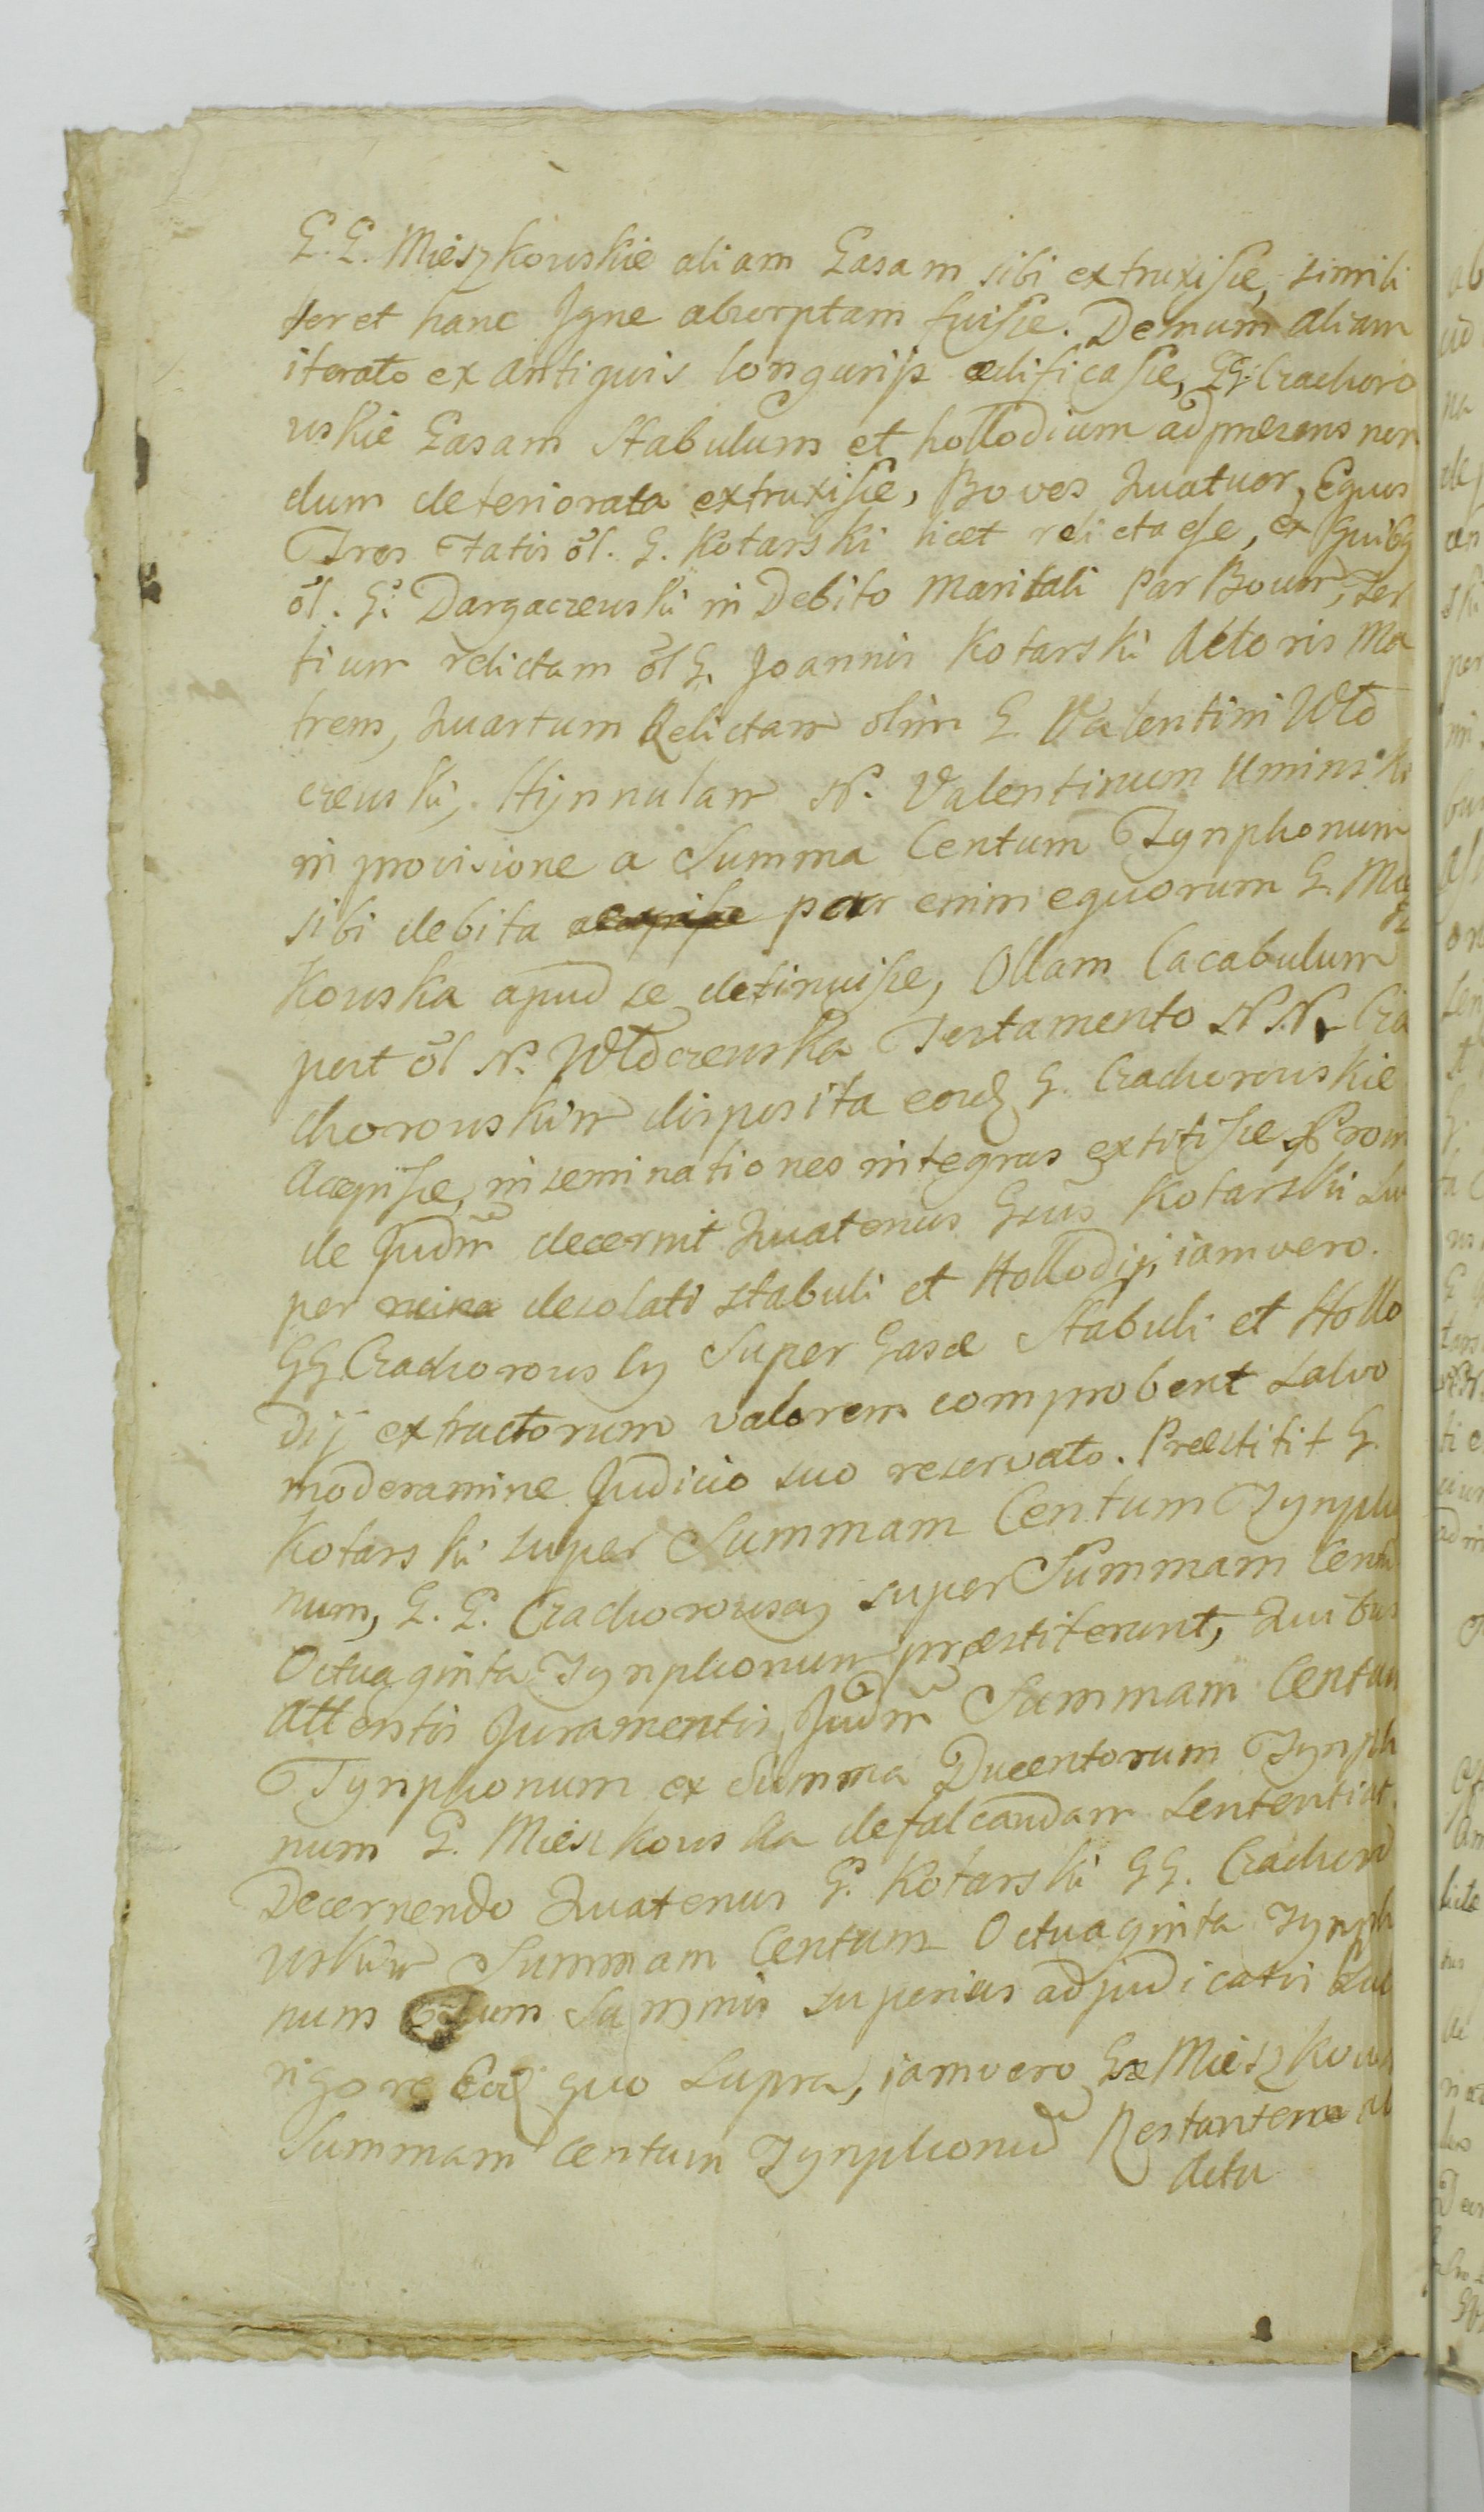 G. G. Mieszkowskie aliam Casam sibi extruxisse, simili
ter et hanc Igne absorptam fuisse. Demum aliam
iterato ex antiquis longurijs ædificasse, GG. Czachoro
wskie Casam Stabulum et hollodium ad præsens non
dum deteriorata extruxisse, Boves Quatuor, Equos
Tres fatis ol. G. Kotarski licet relicta esse, ex quibq
ol. G. Dargaczewski in Debito maritali Par Boum, Ter
tium relictam ol G. Joannis Kotarski Actoris Ma
trem, Quartum Relictam olim G. Valentini Wło
czewski, Hynnulam N. Valentinum Uminski
in provisione a Summa Centum Tynphonum
sibi debita par enim equorum G. Miesz
Kowska apud se detinuisse, Ollam Cacabulum
post ol N. Włoczewska Testamento N.N. Cza
chorowskim disposita eosd G. Czachorowskie
Accepisse, inseminationes integras extitisse Proin
de Judm decernit Quatenus Gsus Kotarski Su
per desolati stabuli et Hollodij, iamvero
GG Czachorowscy Super Casæ Stabuli et Hollo
dij extructorum valorem comprobent Salvo
moderamine Judicio suo reservato. Præstitit G.
Kotarski super Summam Centum Tynpho
num, G. G. Czachorowscy super Summam Centu
Octuaginta Tynphonum præstiterunt, Quibus
Attentis Juramentis, Judm Summam Centum
Tynphonum ex Summa Ducentorum Tynph
num G. Mieszkowska defalcandam Sententiat.
Decernendo Quatenus G. Kotarski GG. Czachoro
wskim Summam Centum Octuaginta Tynph
num Cum Summis superius adjudicatis Sub
rigore Eod quo Supra, iamvero Gæ Mieszkows
Summam centum Tynphonu Restantem
Actu